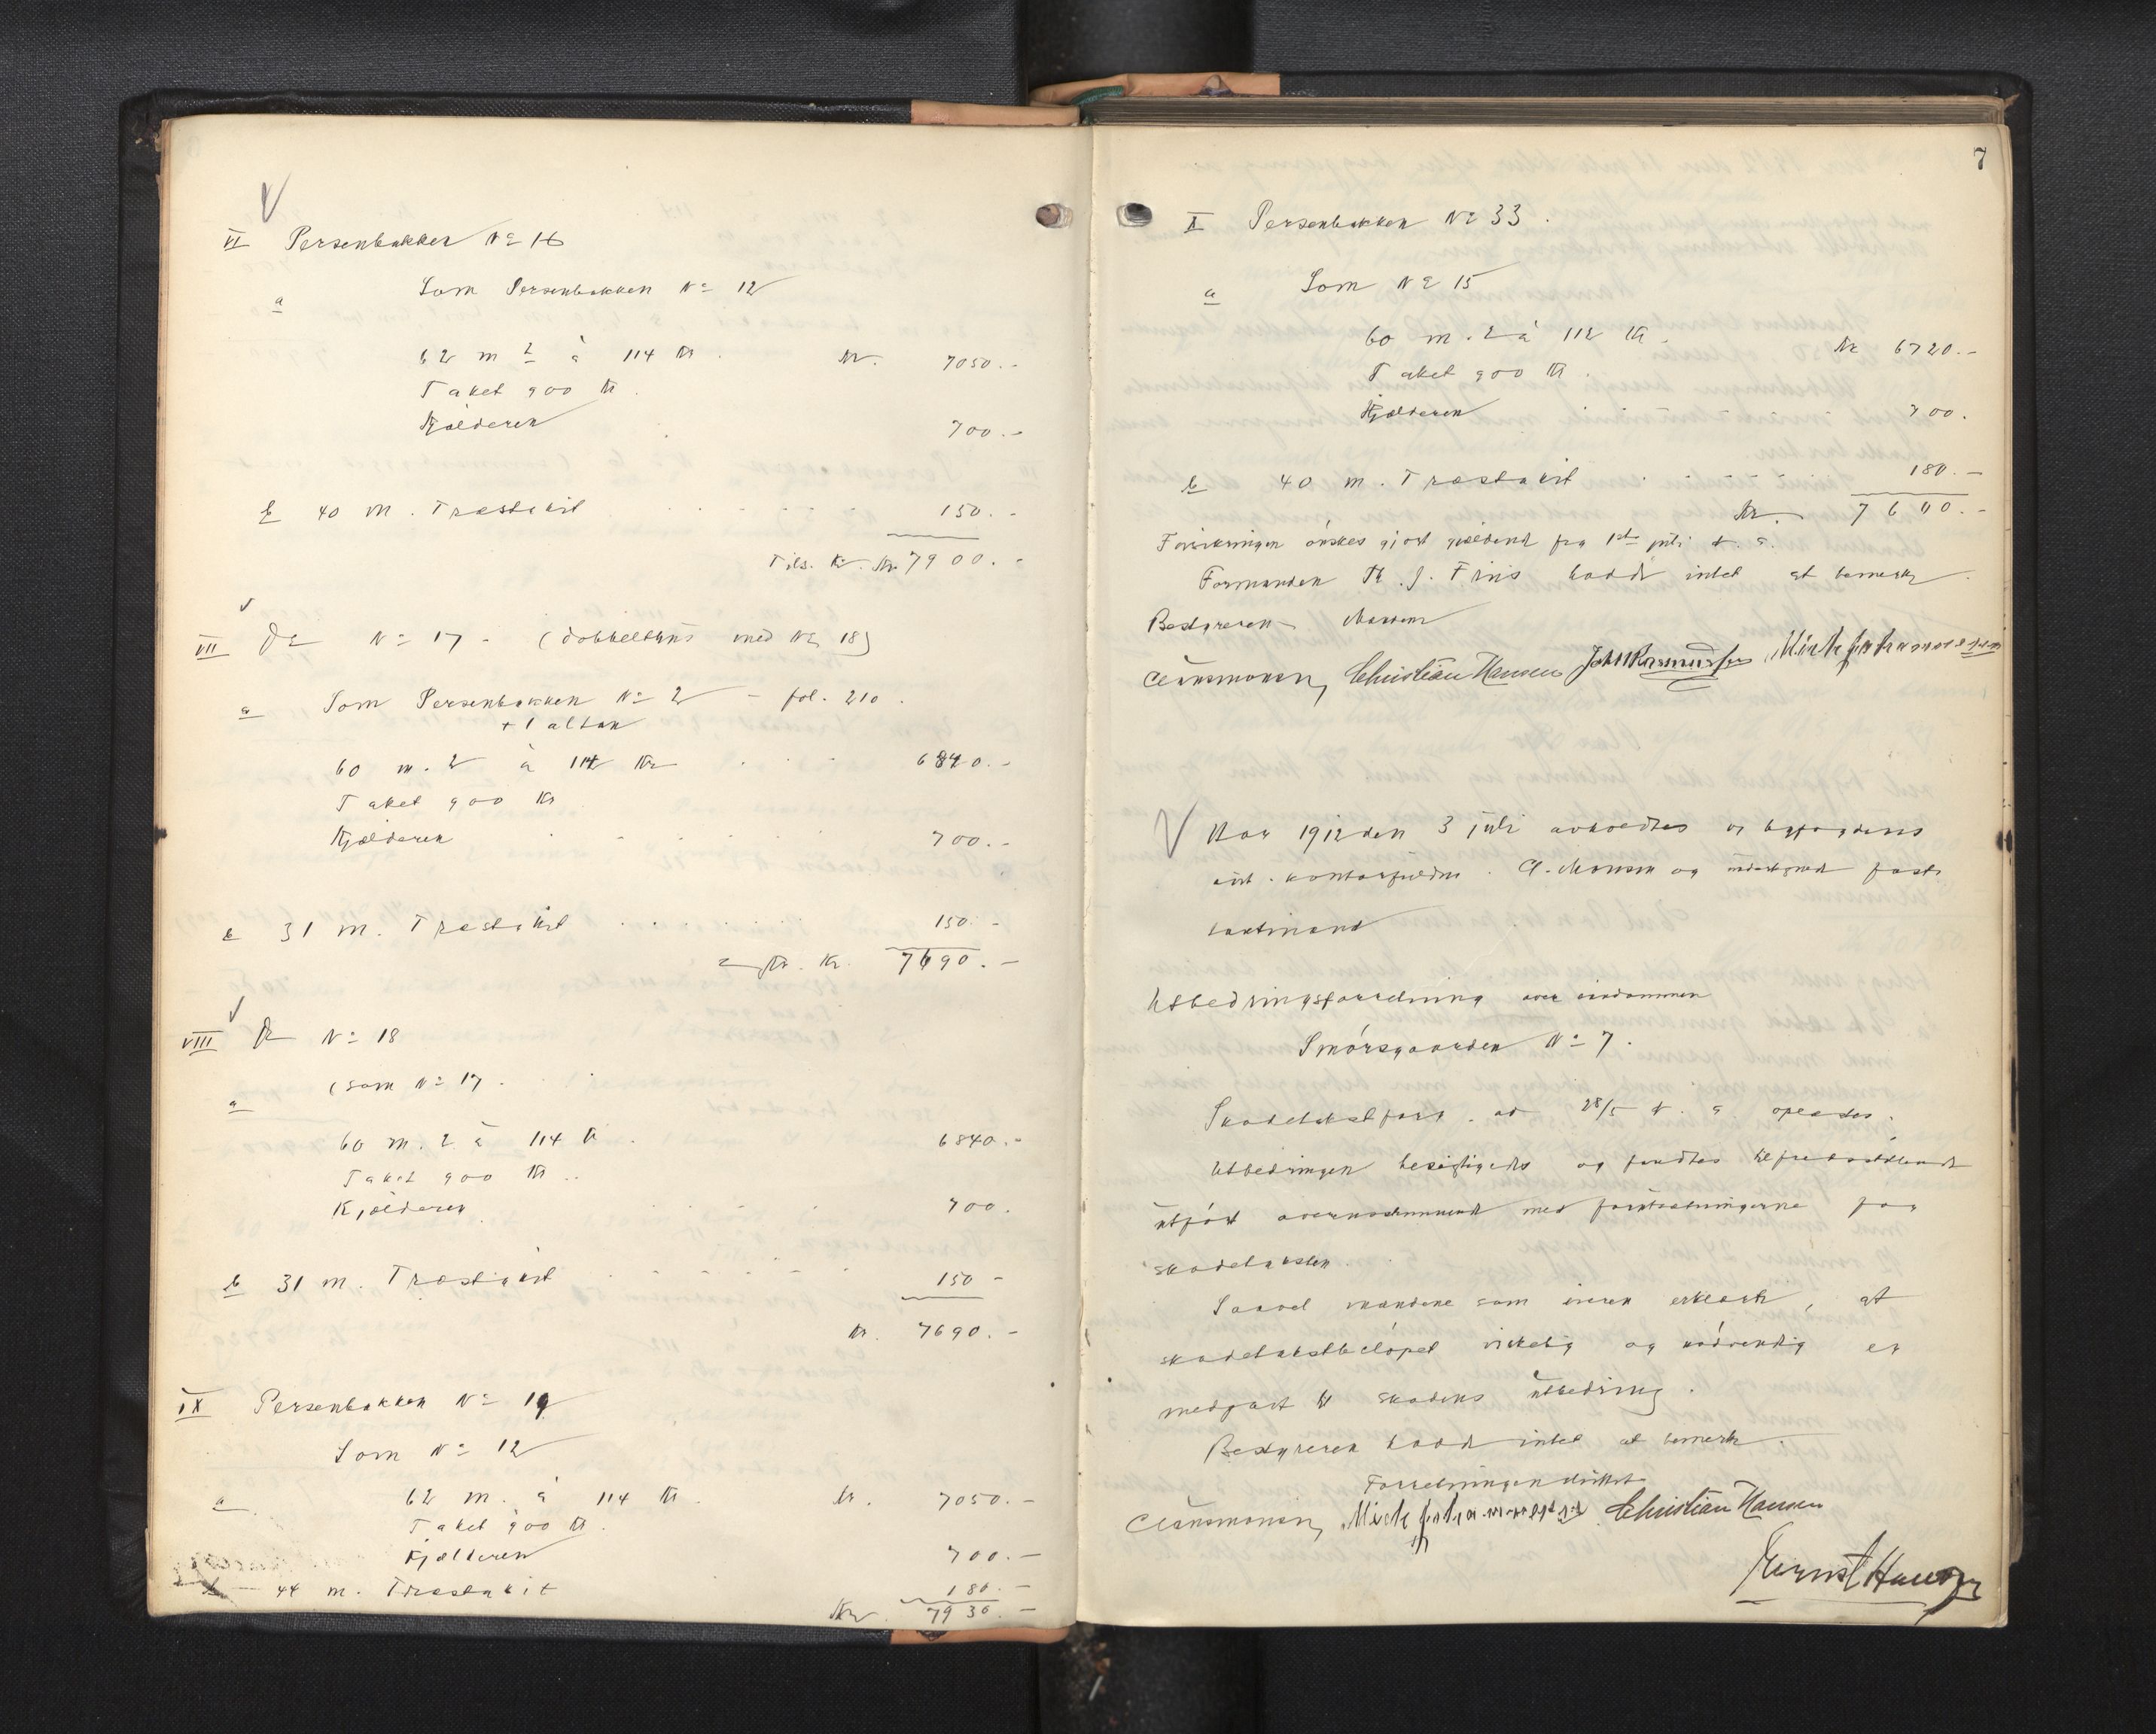 VI Persenbakken No 16
a Som Persenbakken No 12
62 m2 à 114 Kr. Kr. 7050.-
Taket 900 Kr.
Kjælderen 700.-
b 40 m. Træstakit 150.-
Tils. Kr. 7900.-
VII Do No 17 - (dobbelthus med No 18)
a Som Persenbakken No 2 - fol. 210.
+ 1 altan
60 m.2 à 114 Kr 6840.-
Taket 900 Kr
Kjælderen 700.-
b 31 m. Træstakit 150.-
Kr. 7690.-
VIII Do No 18
(som No 17.
a
60 m.2 à 114 Kr. 6840.-
Taket 900 Kr..
Kjælderen 700.
b 31 m. Træstakit 150 -
Kr. 7690.-
IX Persenbakken No 19
Som No 12
a 62 m. à 114 Kr. Kr. 7050.-
Taket 900 Kr.
Kjælderen 700.-
b - 44 m. Træstakit 180.-
Kr. 7930.-
7
X Persenbakken No 33.
a Som No 15
60 m.2 à 112 Kr. Kr 6720.-
Taket 900 Kr.
Kjælderen 700.
b 40 m. Træstakit 180.-
Kr. 7600.-
Forsikringen ønskes gjort gjældende fra 1ste juli d. a.
Formanden Th. J. Friis hadde intet at bemerke.
Bestyreren
Christian Hansen Joh Rasmussen
Aar 1912 den 3 juli avholdtes av byfogdens
aut. kontorfuldm. C. Monsen og undertegnede faste
takstmænd
Utbedringsforretning over eiendommen
Smörsgaarden No 7.
Skadetakstforr. av 28/5 d. a. oplæstes.
Utbedringen besigtigedes og fandtes tilfredsstillende
utført overensstemmende med forutsætningerne for
skadetaksten.
Saavel mændene som eieren erklærte, at
skadetakstbeløpet virkelig og nødvendig er
medgaat til skadens utbedring.
Bestyreren hadde intet at bemerke.
Forretningen sluttet
Christian Hansen